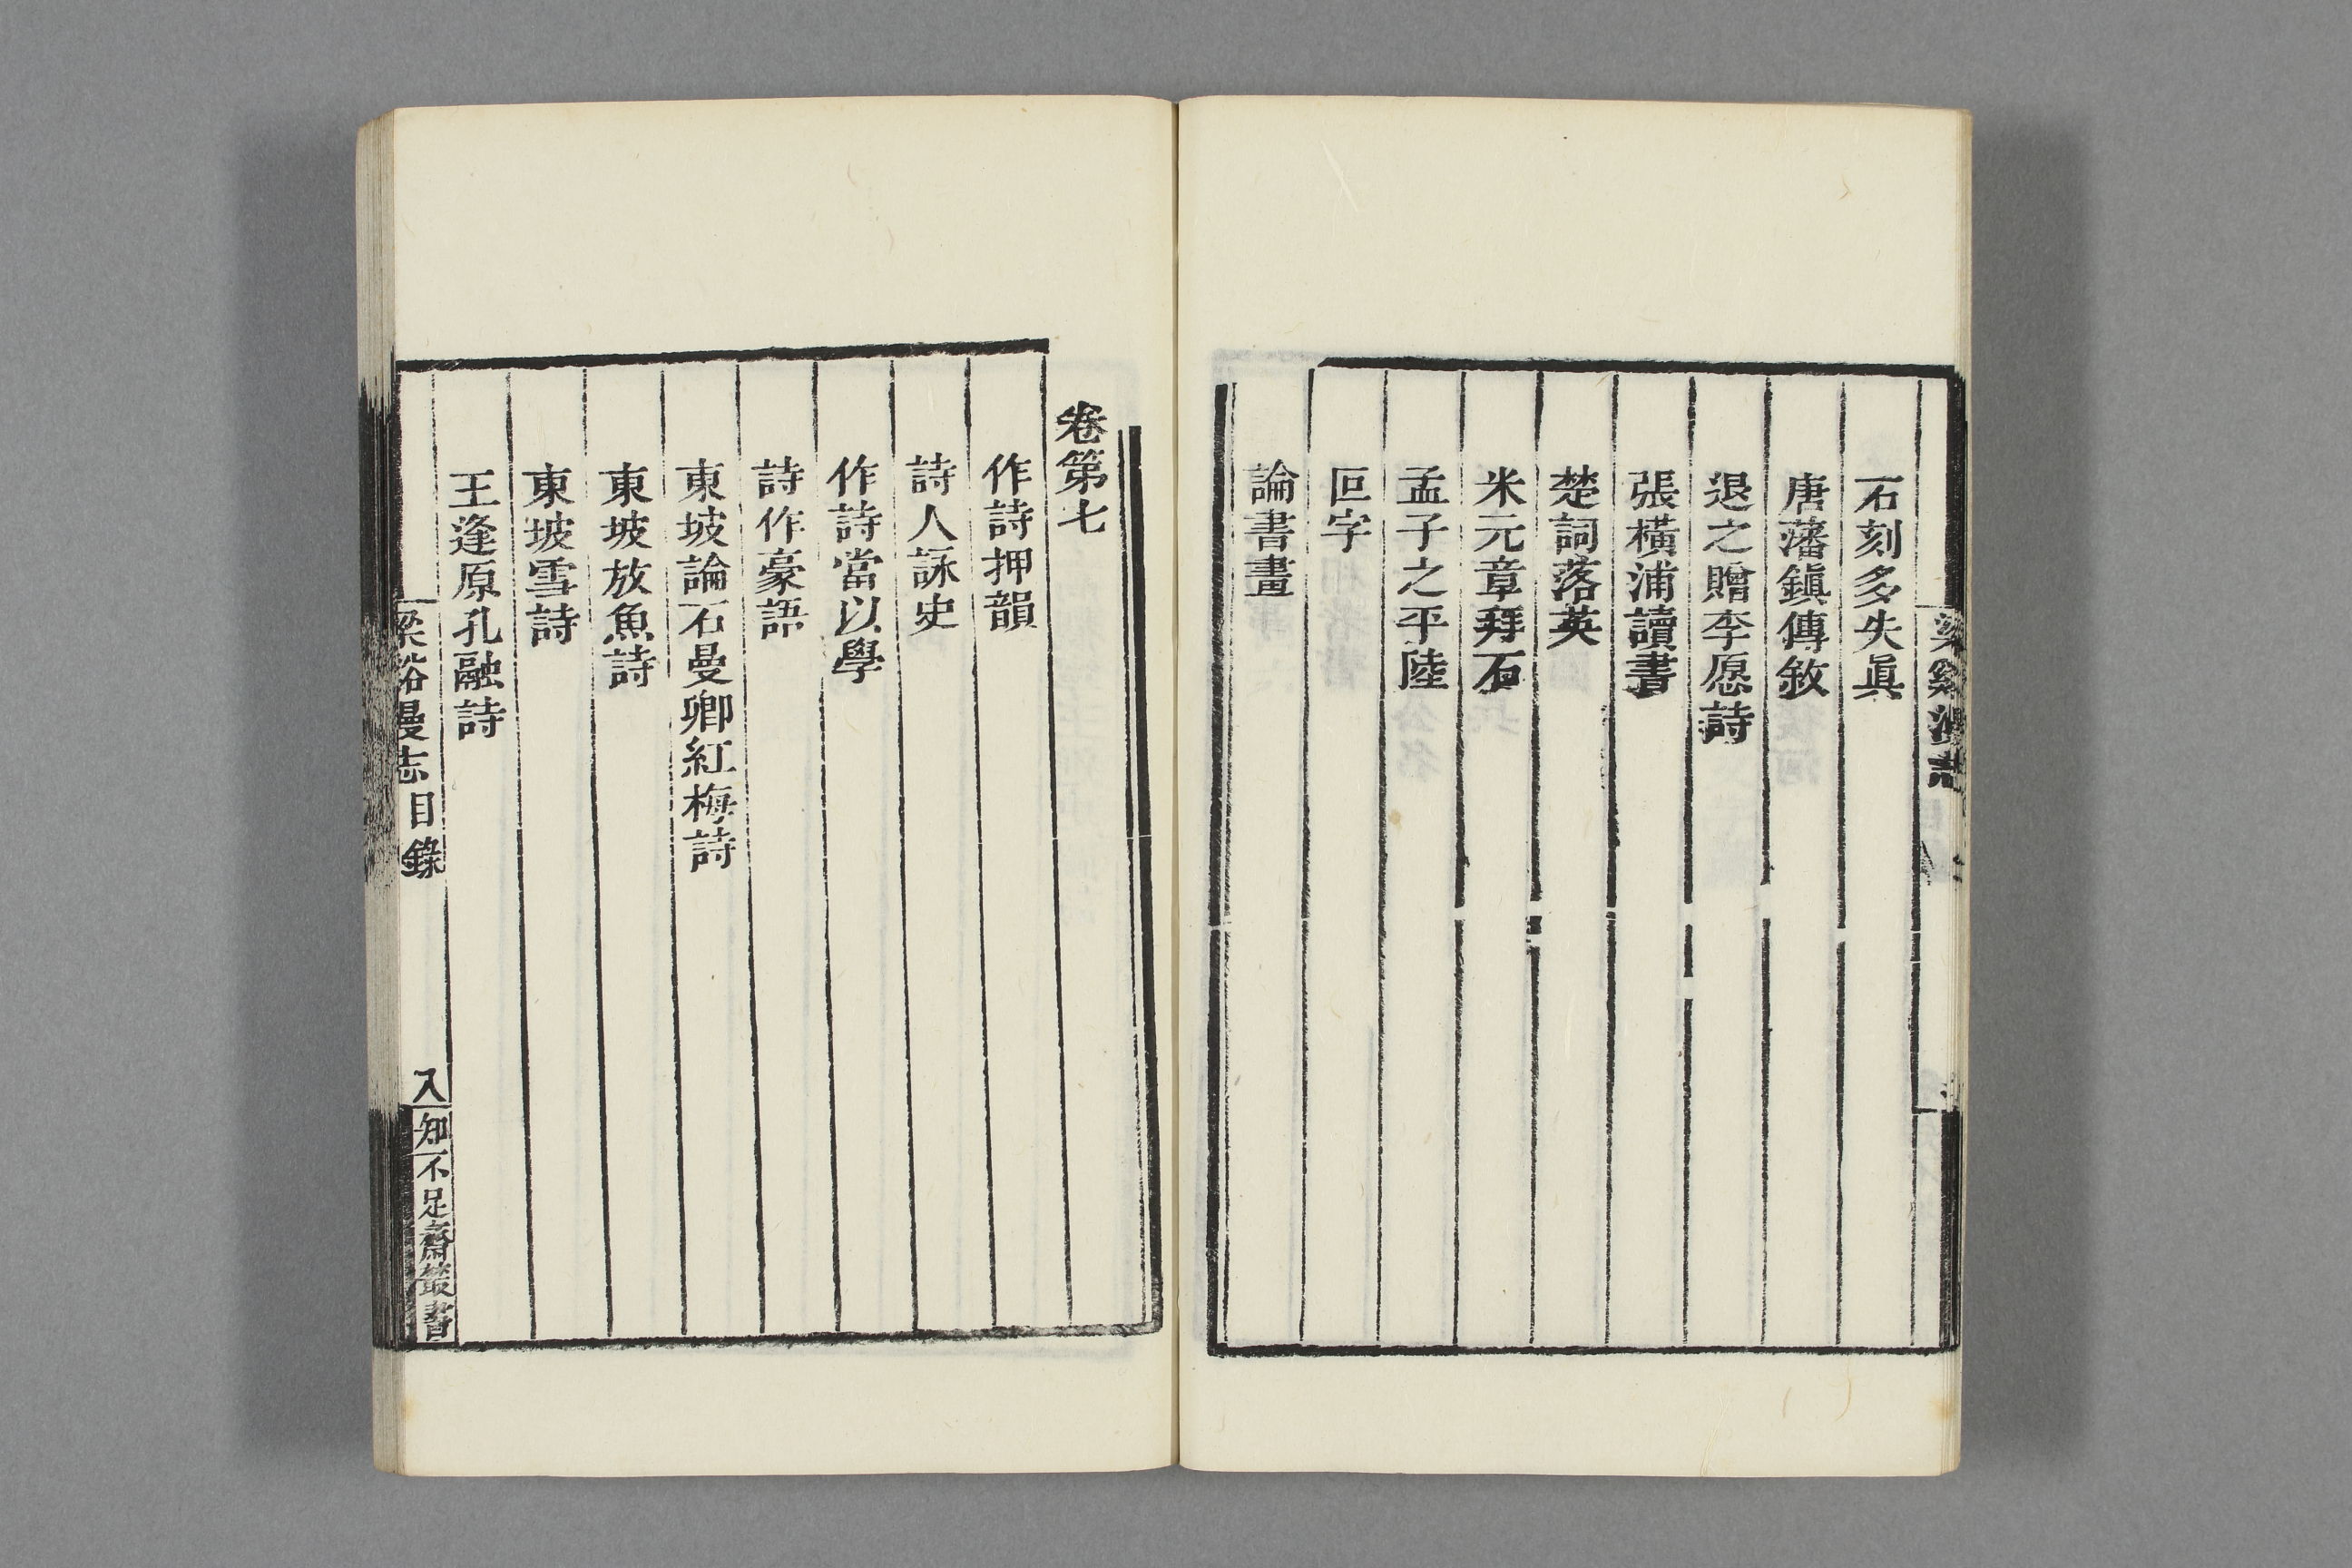 石刻多失眞
唐藩鎭傳敘
退之贈李愿詩
張橫浦讀書
楚詞落英
米元章拜石
孟子之平陸
叵字
論書畫
卷第七
作詩押韻
詩人詠史
作詩當以學
詩作豪語
東坡論石曼卿紅梅詩
東坡放魚詩
東坡雪詩
王逢原孔融詩
梁谿漫志目錄
八
知不足齋叢書